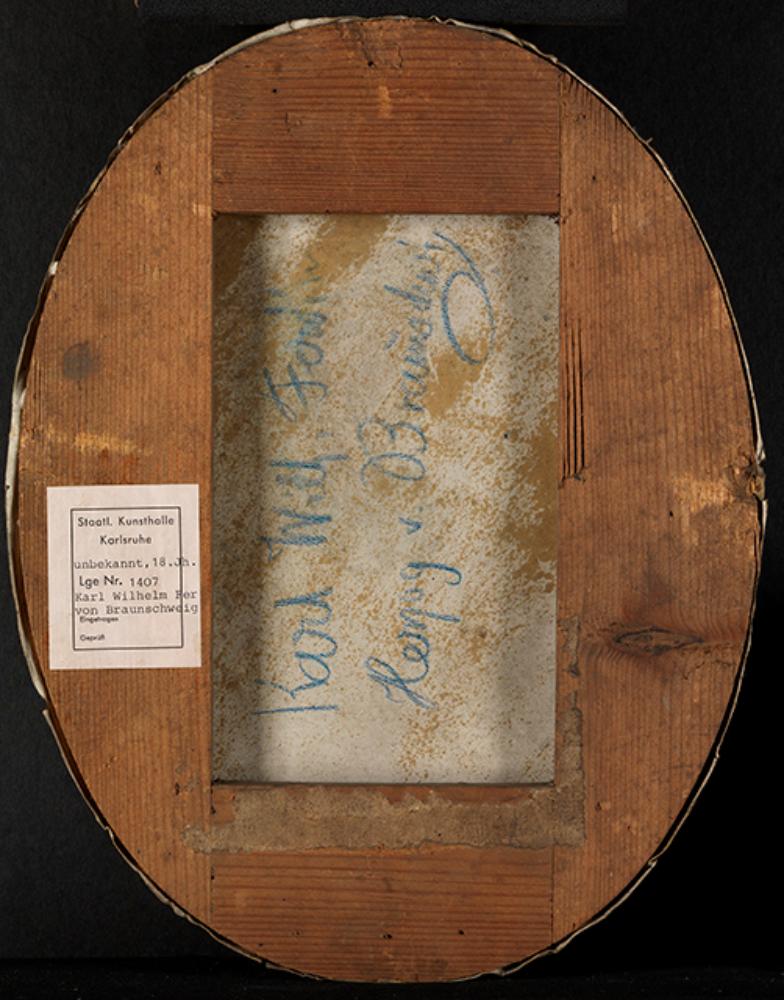 Staatl. Kunsthalle
Karlsruhe
unbekannt, 18.Jh.
Lge Nr. 1407
Karl Wilhelm Fer
von Braunschweig
Eingetragen
Geprüft
Karl Wilh. Ferdin
Herzog v. Braunschweig